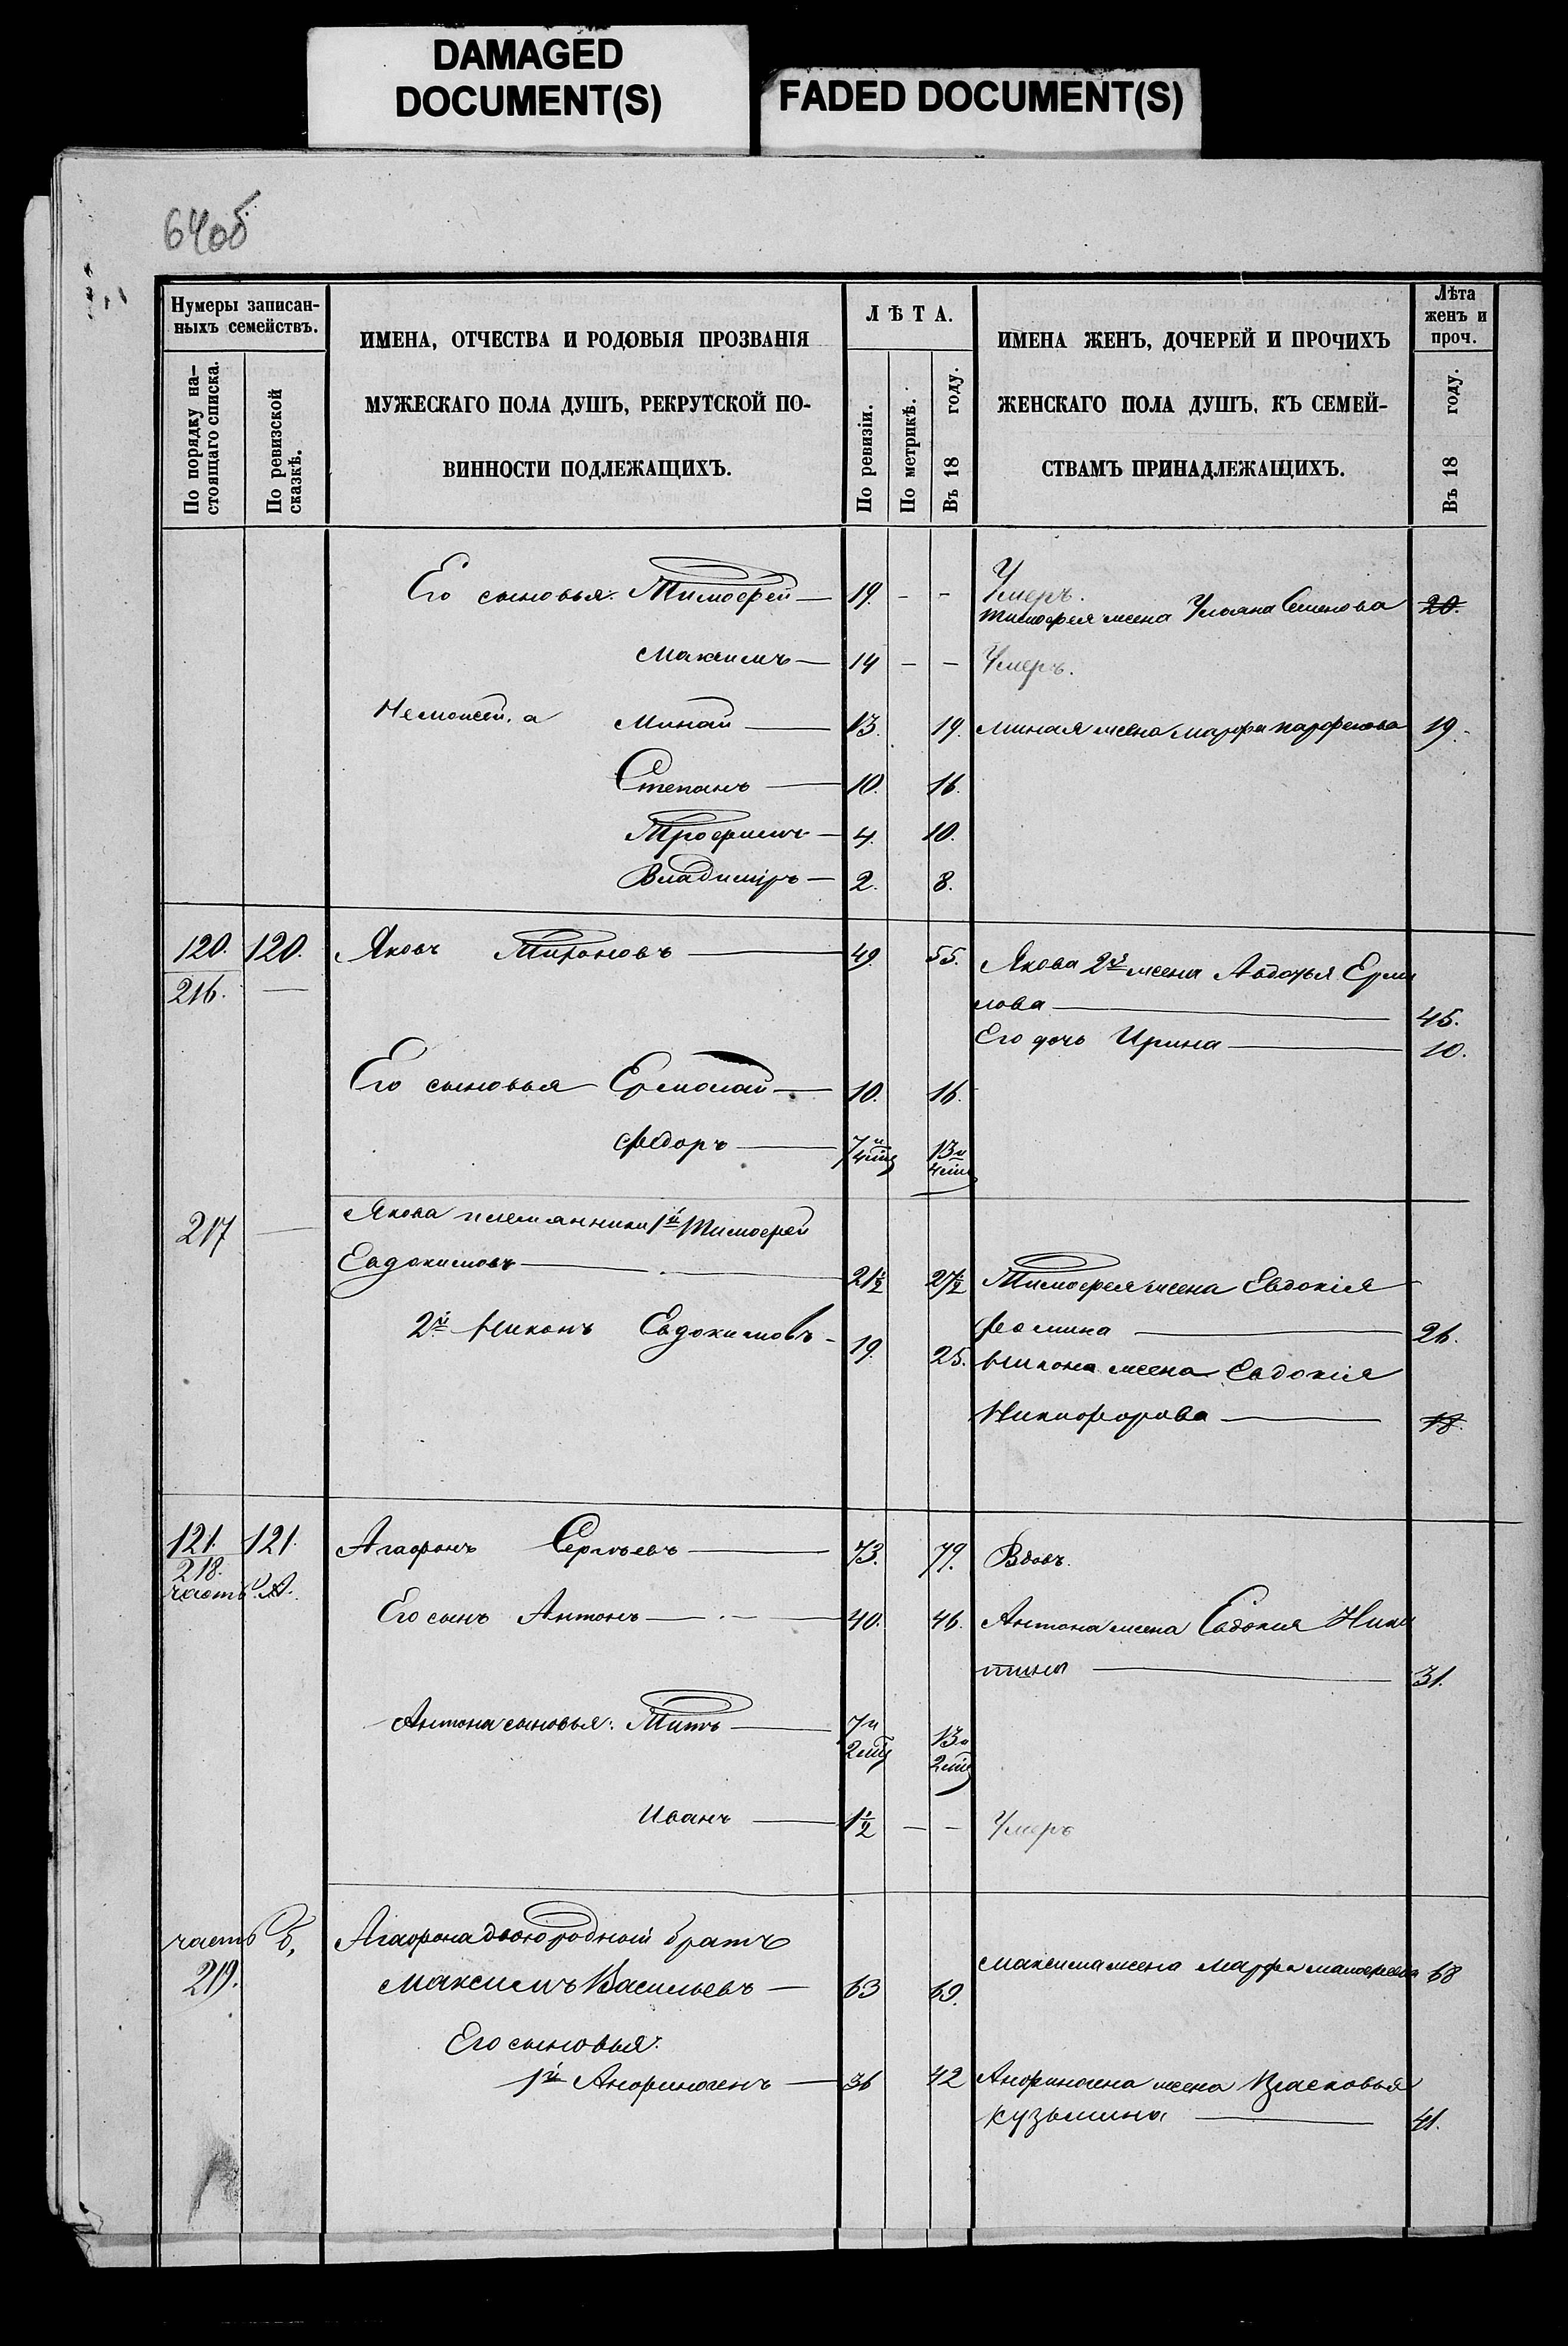 DAMAGED
DOCUMENT(S)
FADED DOCUMENT(S)
64об
Нумеры записан-
ныхъ семействъ.
По порядку на-
стоящаго списка.
По ревизской
сказкѣ.
ИМЕНА, ОТЧЕСТВА И РОДОВЫЯ ПРОЗВАНІЯ
МУЖЕСКАГО ПОЛА ДУШЪ, РЕКРУТСКОЙ ПО-
ВИННОСТИ ПОДЛЕЖАЩИХЪ.
ЛѢТА.
По ревизіи.
По метрикѣ.
Въ 18 году.
ИМЕНА ЖЕНЪ, ДОЧЕРЕЙ И ПРОЧИХЪ
ЖЕНСКАГО ПОЛА ДУШЪ, КЪ СЕМЕЙ-
СТВАМЪ ПРИНАДЛЕЖАЩИХЪ.
Лѣта
женъ и
проч.
Въ 18 году.
Его сыновья: Тимофей — 19. - - Умеръ.
Тимофея жена Ульяна Семенова 20.
Максимъ — 14 - - Умеръ.
Минай — 13. 19. Миная жена Марфа Парфенова 19.
Степанъ — 10. 16.
Трофимъ — 4. 10.
Владиміръ — 2. 8.
120. 120. Яковъ Мироновъ — 49. 55. Якова 2я жена Авдотья Ерми
216. — лова — 45.
Его дочь Ирина — 10.
Его сыновья Ермолай — 10. 16.
Федоръ — 7 и 4 міц 13 и 4 міц
217 — Якова племянники 1й Тимофей
Евдокимовъ — 21½ 27½ Тимофея жена Евдокія
Фомина — 26.
2й Никонъ Евдокимовъ - 19. 25. Никона жена Евдокія
Никифорова — 18.
121. 121. Агафонъ Сергѣевъ — 73. 79. Вдовъ.
218.
часть А.
Его сынъ Антонъ — 40. 46. Антона жена Евдокия Ники
тина — 31.
Антона сыновья: Титъ — 7 и 2 міц 13 и 2 міц
Иванъ — 1½ - - Умеръ
часть б, Агафона двоюродный братъ
219. Максимъ Васильевъ — 63 69. Максима жена Марфа 68
Его сыновья:
1й Анфиногенъ — 36 42 Анфиногена жена Прасковья
Кузьмина — 41.